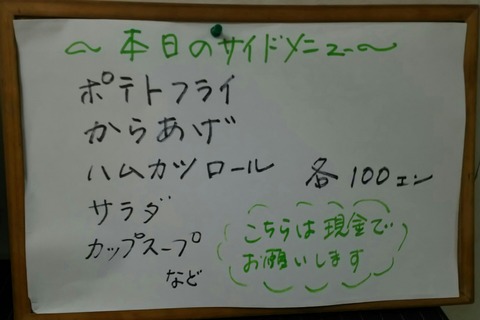 〜本日のサイドメニュー〜
ポテトフライ
からあげ
ハムカツロール
サラダ
カップスープ
など
各100エン
こちらは現金で
お願いします